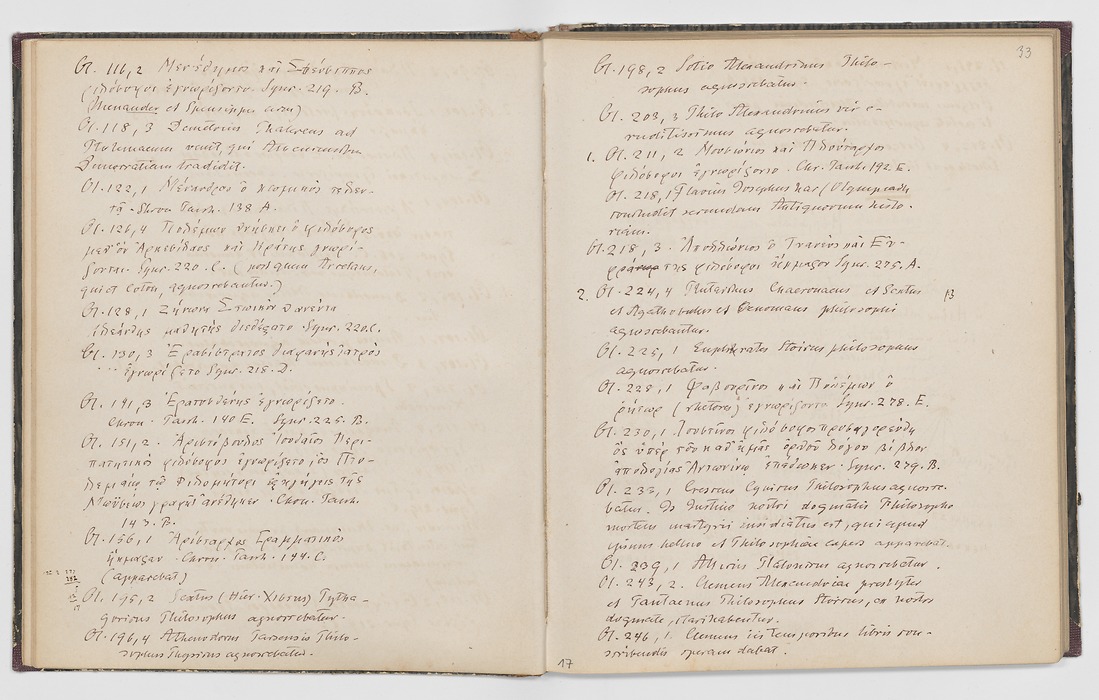 Ol. 116, 2 Μενέδημος καὶ Σπεύσιππος
φιλόσοφοι ἐγνωρίζοντο. Sync. 219. B.
(Menander et Speusippus
Ol. 118, 3 Demetrius Phalereus ad
Ptolemaeum venit, qui Atheniensibus
Democratiam tradidit.
Ol. 122, 1 Μένανδρος ὁ κωμικὸς τελευ-
τᾷ. Chron Pasch. 138 A.
Ol. 126, 4 Πολέμων θνήσκει ὁ φιλόσοφος
μεθ' ὃν Ἀρκεσίλαος καὶ Κράτης γνωρί-
ζονται. Sync. 220. C. (post quem Arcesilaus,
qui et Coton, agnoscebantur.)
Ol. 128, 1 Ζήνωνα Στωικὸν θανέντα
Κλεάνθης μαθητὴς διεδέξατο. Sync. 220 C.
Ol. 130, 3 Ἐρασίστρατος διαφανὴς ἰατρὸς
ἐγνωρίζετο Sync. 218. D.
Ol. 141, 3 Ἐρατοσθένης ἐγνωρίζετο.
Chron. Pasch. 140 E. Sync. 225. B.
Ol. 151, 2. Ἀριστόβουλος Ἰουδαῖος Περι-
πατητικὸς φιλόσοφος ἐγνωρίζετο, ὃς Πτο-
λεμαίῳ τῷ Φιλομήτορι ἐξηγήσεις τῆς
Μωϋσέως γραφῆς ἀνέθηκεν. Chron. Pasch.
143. B.
Ol. 156, 1 Ἀρίσταρχος Γραμματικὸς
ἤκμαζεν. Chron. Pasch. 144. C.
(apparebat)
Ol. 195, 2 Sextus (Hier. Xistus) Pytha-
goricus Philosophus agnoscebatur.
Ol. 196, 4 Athenodorus Tarsensis Philo-
sophus agnoscebatur.
17
33
Ol. 198, 2 Sotio Alexandrinus Philo-
sophus agnoscebatur.
Ol. 203, 3 Philo Alexandrinus vir e-
ruditissimus agnoscebatur.
1. Ol. 211, 2 Μουσώνιος καὶ Πλούταρχος
φιλόσοφοι ἐγνωρίζοντο. Chr. Pasch. 192 E.
Ol. 218, 1 Flavius Josephus hac Olympiade
conscribit secundam Antiquorum histo-
riam.
Ol. 218, 3. Ἀπολλώνιος ὁ Τυανεὺς καὶ Εὐ-
φράτης φιλόσοφοι ἤκμαζον Sync. 275. A.
2. Ol. 224, 4 Plutarchus Chaeronaeus et Sextus
et Agathobulus et Oenomaus philosophi
agnoscebantur.
Ol. 225, 1 Euphrates Stoicus philosophus
agnoscebatur.
Ol. 228, 1 Φαβουρῖνος καὶ Πολέμων ὁ
ῥήτωρ (rhetores) ἐγνωρίζοντο Sync. 278. E.
Ol. 230, 1 Ἰουστῖνος φιλόσοφος προσηγορεύθη
ὃς ὑπὲρ τοῦ καθ' ἡμᾶς ὀρθοῦ λόγου βίβλον
ἀπολογίας Ἀντωνίνῳ ἐπέδωκεν. Sync. 279. B.
Ol. 233, 1 Crescens Cynicus Philosophus agnosce-
batur. Is Justino nostri dogmatis Philosopho
mortem martyrii insidiatus est, qui apud
ipsum helluo et Philosophiae
Ol. 239, 1 Atticus Platonicus agnoscebatur.
Ol. 243, 2. Clemens Alexandriae presbyter
et Pantaenus Philosophus Stoicus, in nostro
dogmate, clari habentur.
Ol. 246, 1. Clemens iis temporibus libris con-
scribendis operam dabat.